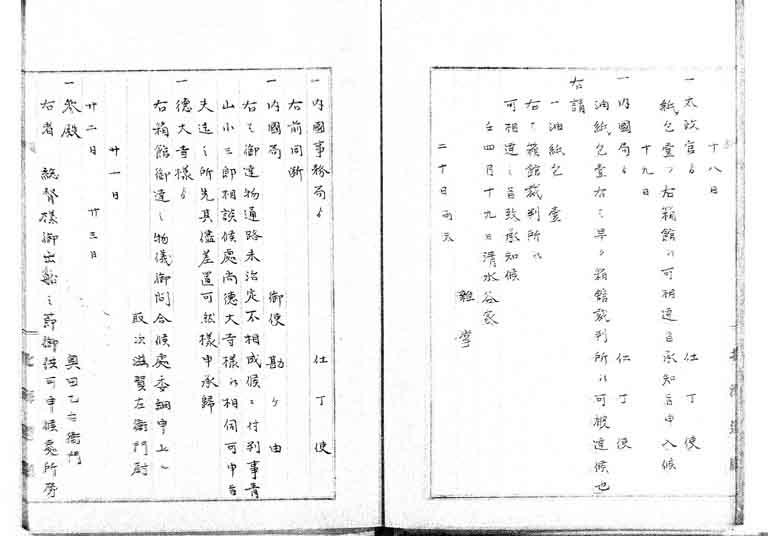 十八日
一太政官ゟ 仕丁使
紙包壹ツ右箱館江可相達旨承知旨申入候
十九日
一内国局ゟ 仕丁使
油紙包壹右之早々箱館裁判所江可被達候也
右請
一油紙包 壹
右之箱館裁判所江
可相達之旨致承知候
四月十九日清水谷家
雜掌
二十日雨天
一内國事務局ゟ 仕丁使
右前同断
一内國局 御使 勘ケ由
右之御達物通路未治定不相成候ニ付判事青
山小三郎相談候處尚德大寺様江相伺可申旨
夫迄之所先其儘差置可然樣申承歸
一德大寺樣ゟ
右箱館御達之物儀御問合候處委細申上ル
取次滋賀左衛門尉
廿一日
廿二日 廿三日
一參殿 奥田乙右衛門
右者 総督樣御出船之節御供可申候處所勞